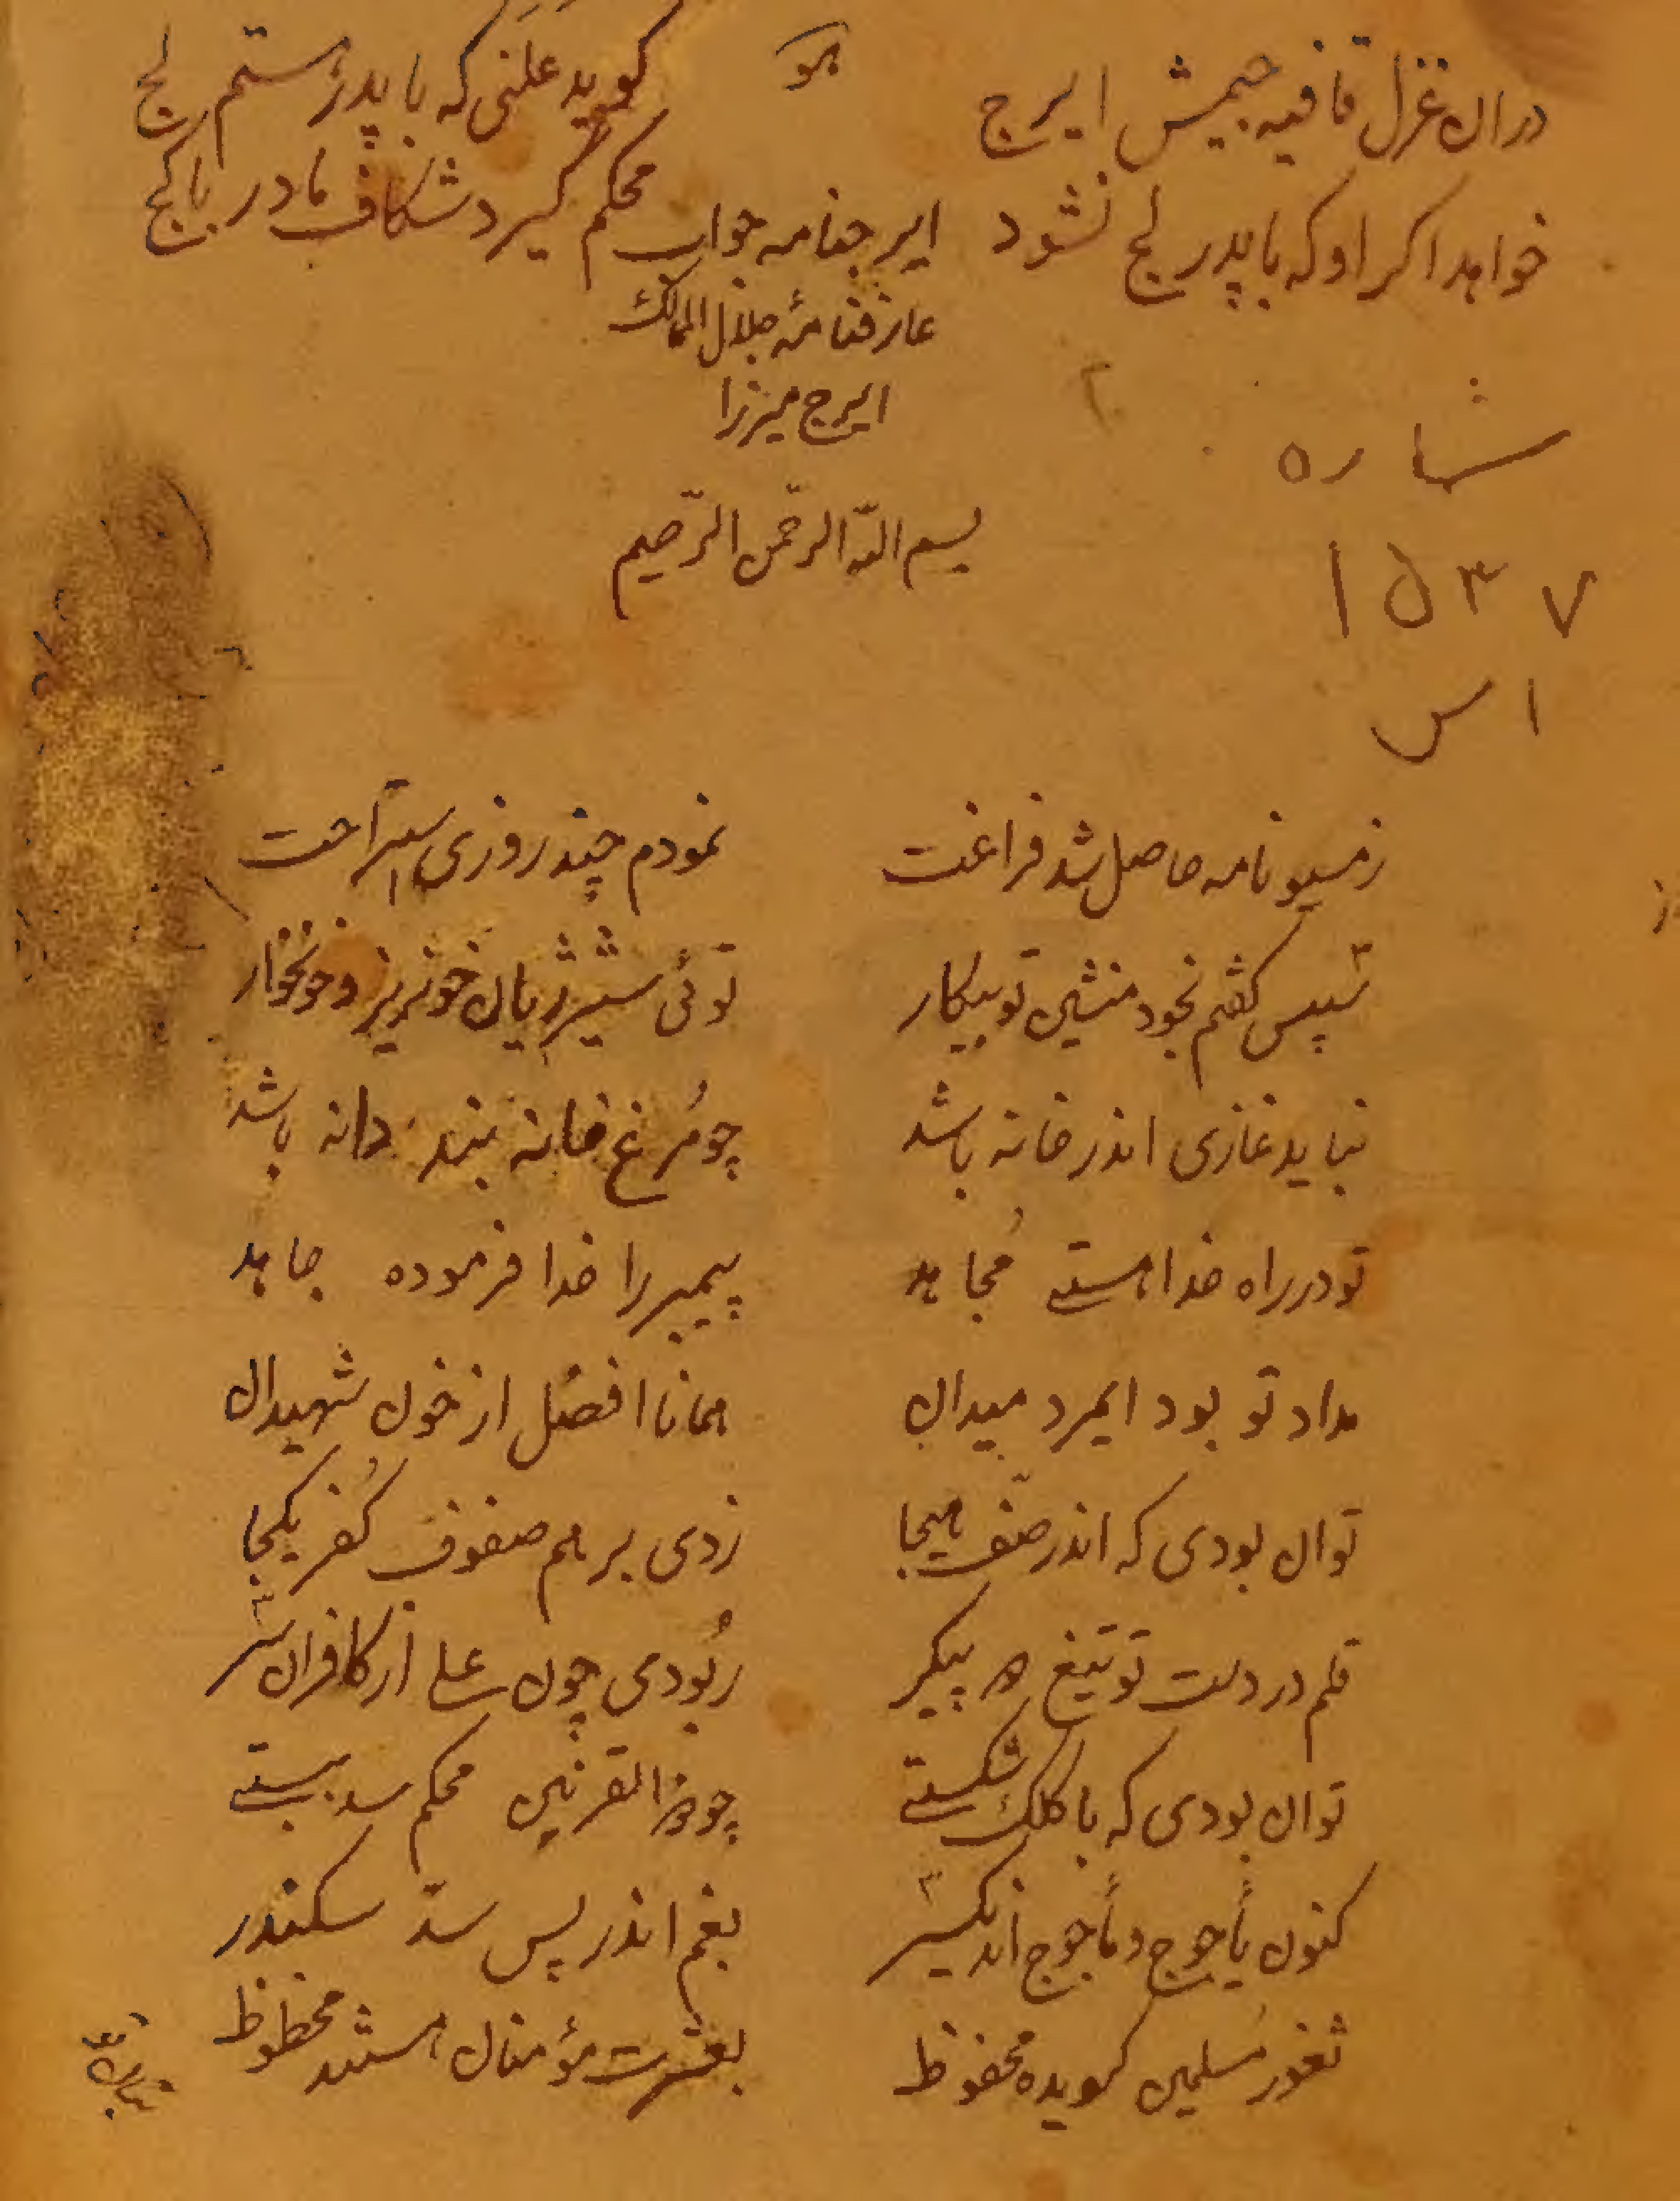 هو
در ان غزل قافیه جیمش ایرج
گوید علنی که با پدر رستم لج
خواهد اگر او که با پدر لج نشود
محکم گیرد شکاف مادر با کج
ایرجنامه جواب
عارفنامۀ جلال الممالک
ایرج میرزا
۲
شماره
بسم الله الرحمن الرحیم
۱۵۳۷
اس
زمسیو نامه حاصل شد فراغت
نمودم چند روزی استراحت
سپس گفتم بخود منشین تو بیکار
توئی شیر ژیان خونریز و خونخوار
نباید غازی اندر خانه باشد
چو مُرغ خانه بند دانه باشد
تو در راه خدا هستی مُجاهد
پیمبر را خدا فرموده جاهد
مداد تو بود ایمرد میدان
همانا افضل از خون شهیدان
تو ان بودی که اندر صف هیجا
زدی بر هم صفوف کُفر یکجا
قلم در دست تو تیغ دو پیکر
رُبودی چون علی از کافران سر
تو ان بودی که با کلک شکستی
چو ذوالقرنین محکم سد بستی
کنون یأجوج و مأجوج اند یکسر
بغم اندر پس سدّ سکندر
ثغور مُسلمین گردیده محفوظ
بعشرت مؤمنان هستند محظوظ